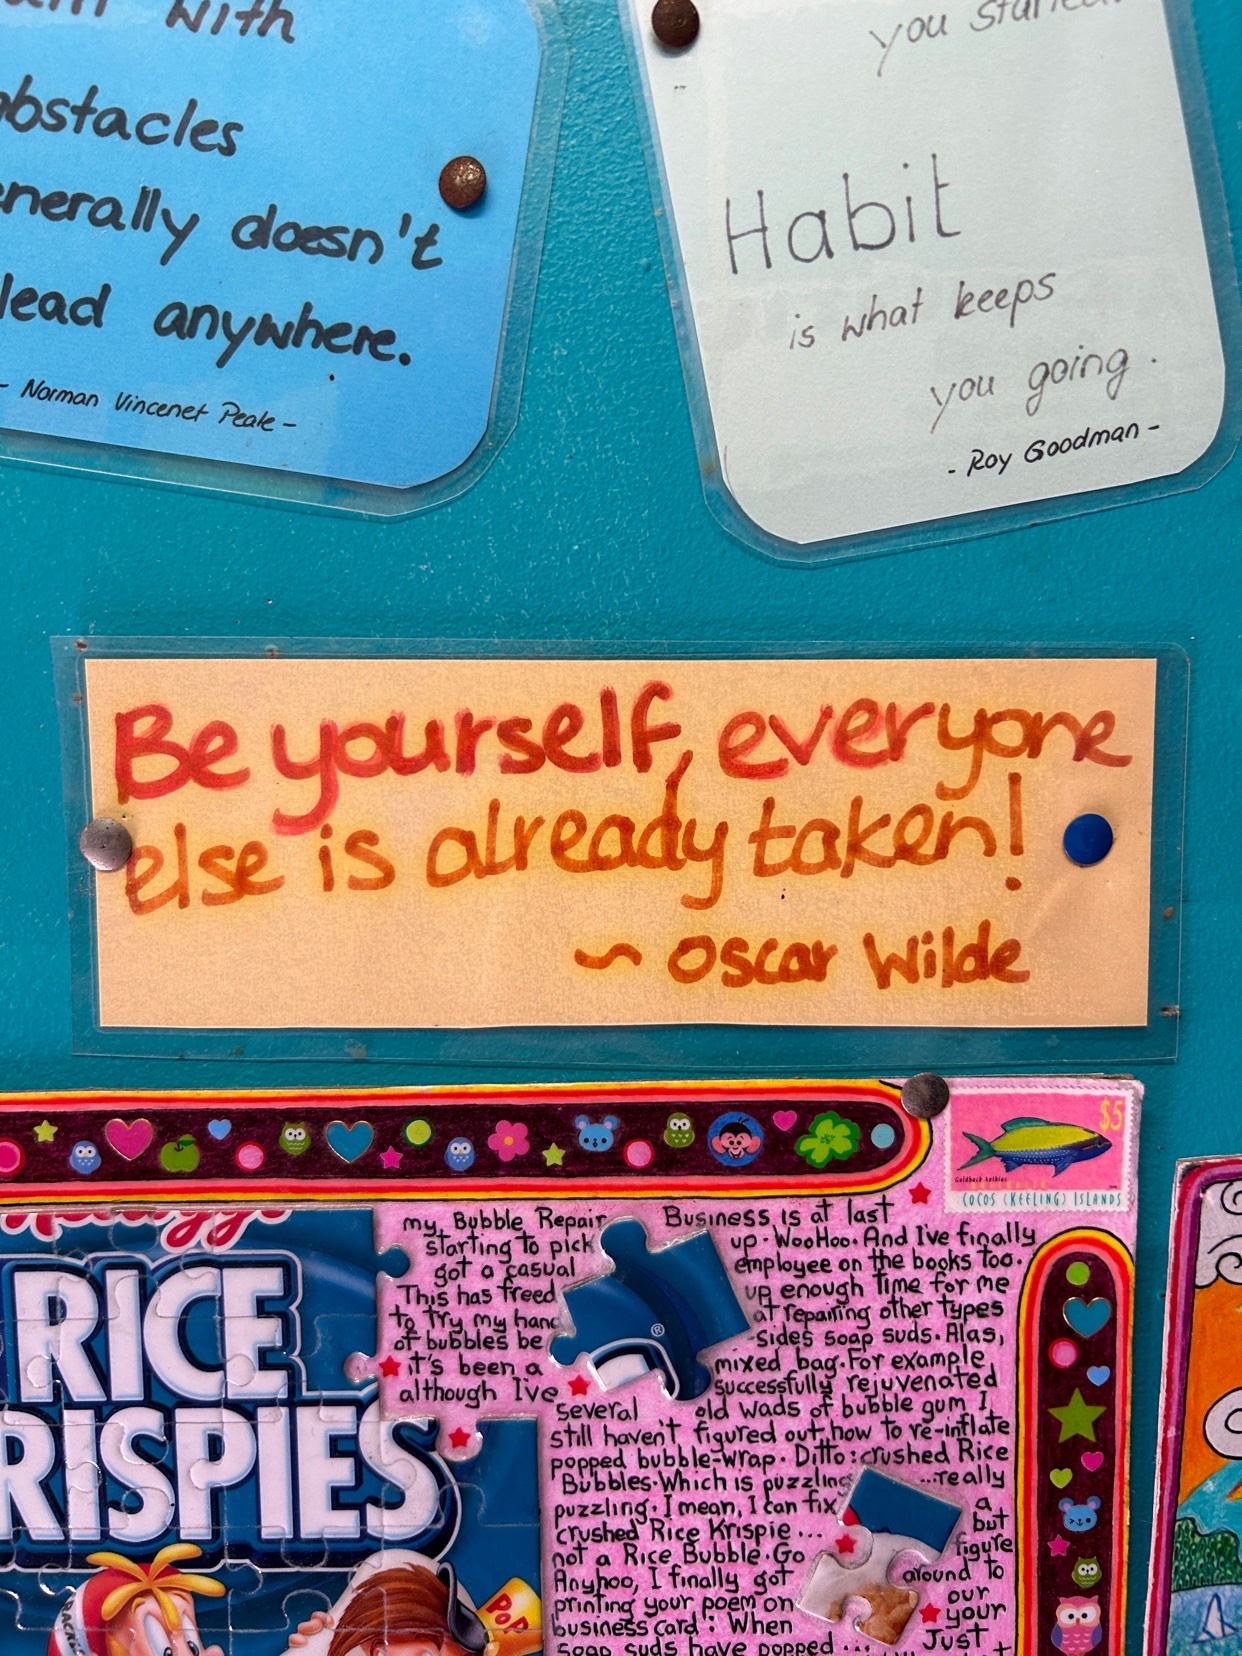 with
obstacles
doesn't
lead anywhere.
- Norman Vincenet Peale -
you started
Habit
is what keeps
you going.
- Roy Goodman -
Be yourself, everyone
else is already taken!
~ Oscar Wilde
$5
Goldback Anthias
AUSTRALIA
COCOS (KEELING) ISLANDS
Kellogg's
RICE
KRISPIES
®
POP
my Bubble Repair Business is at last
starting to pick up. WooHoo. And I've finally
got a casual employee on the books too.
This has freed up enough time for me
to try my hand at repairing other types
of bubbles besides soap suds. Alas,
it's been a mixed bag. For example
although I've successfully rejuvenated
several old wads of bubble gum I
still haven't figured out how to re-inflate
popped bubble-wrap. Ditto: crushed Rice
Bubbles. Which is puzzling ...really
puzzling. I mean, I can fix a
crushed Rice Krispie... but
not a Rice Bubble. Go figure
Anyhoo, I finally got around to
printing your poem on our
business card: When your
soap suds have popped ... Just